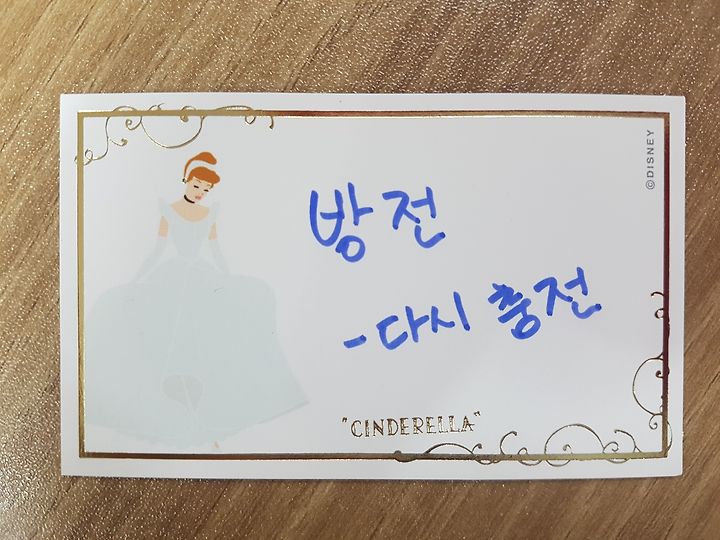 ©DISNEY
방전
-다시 충전
"CINDERELLA"